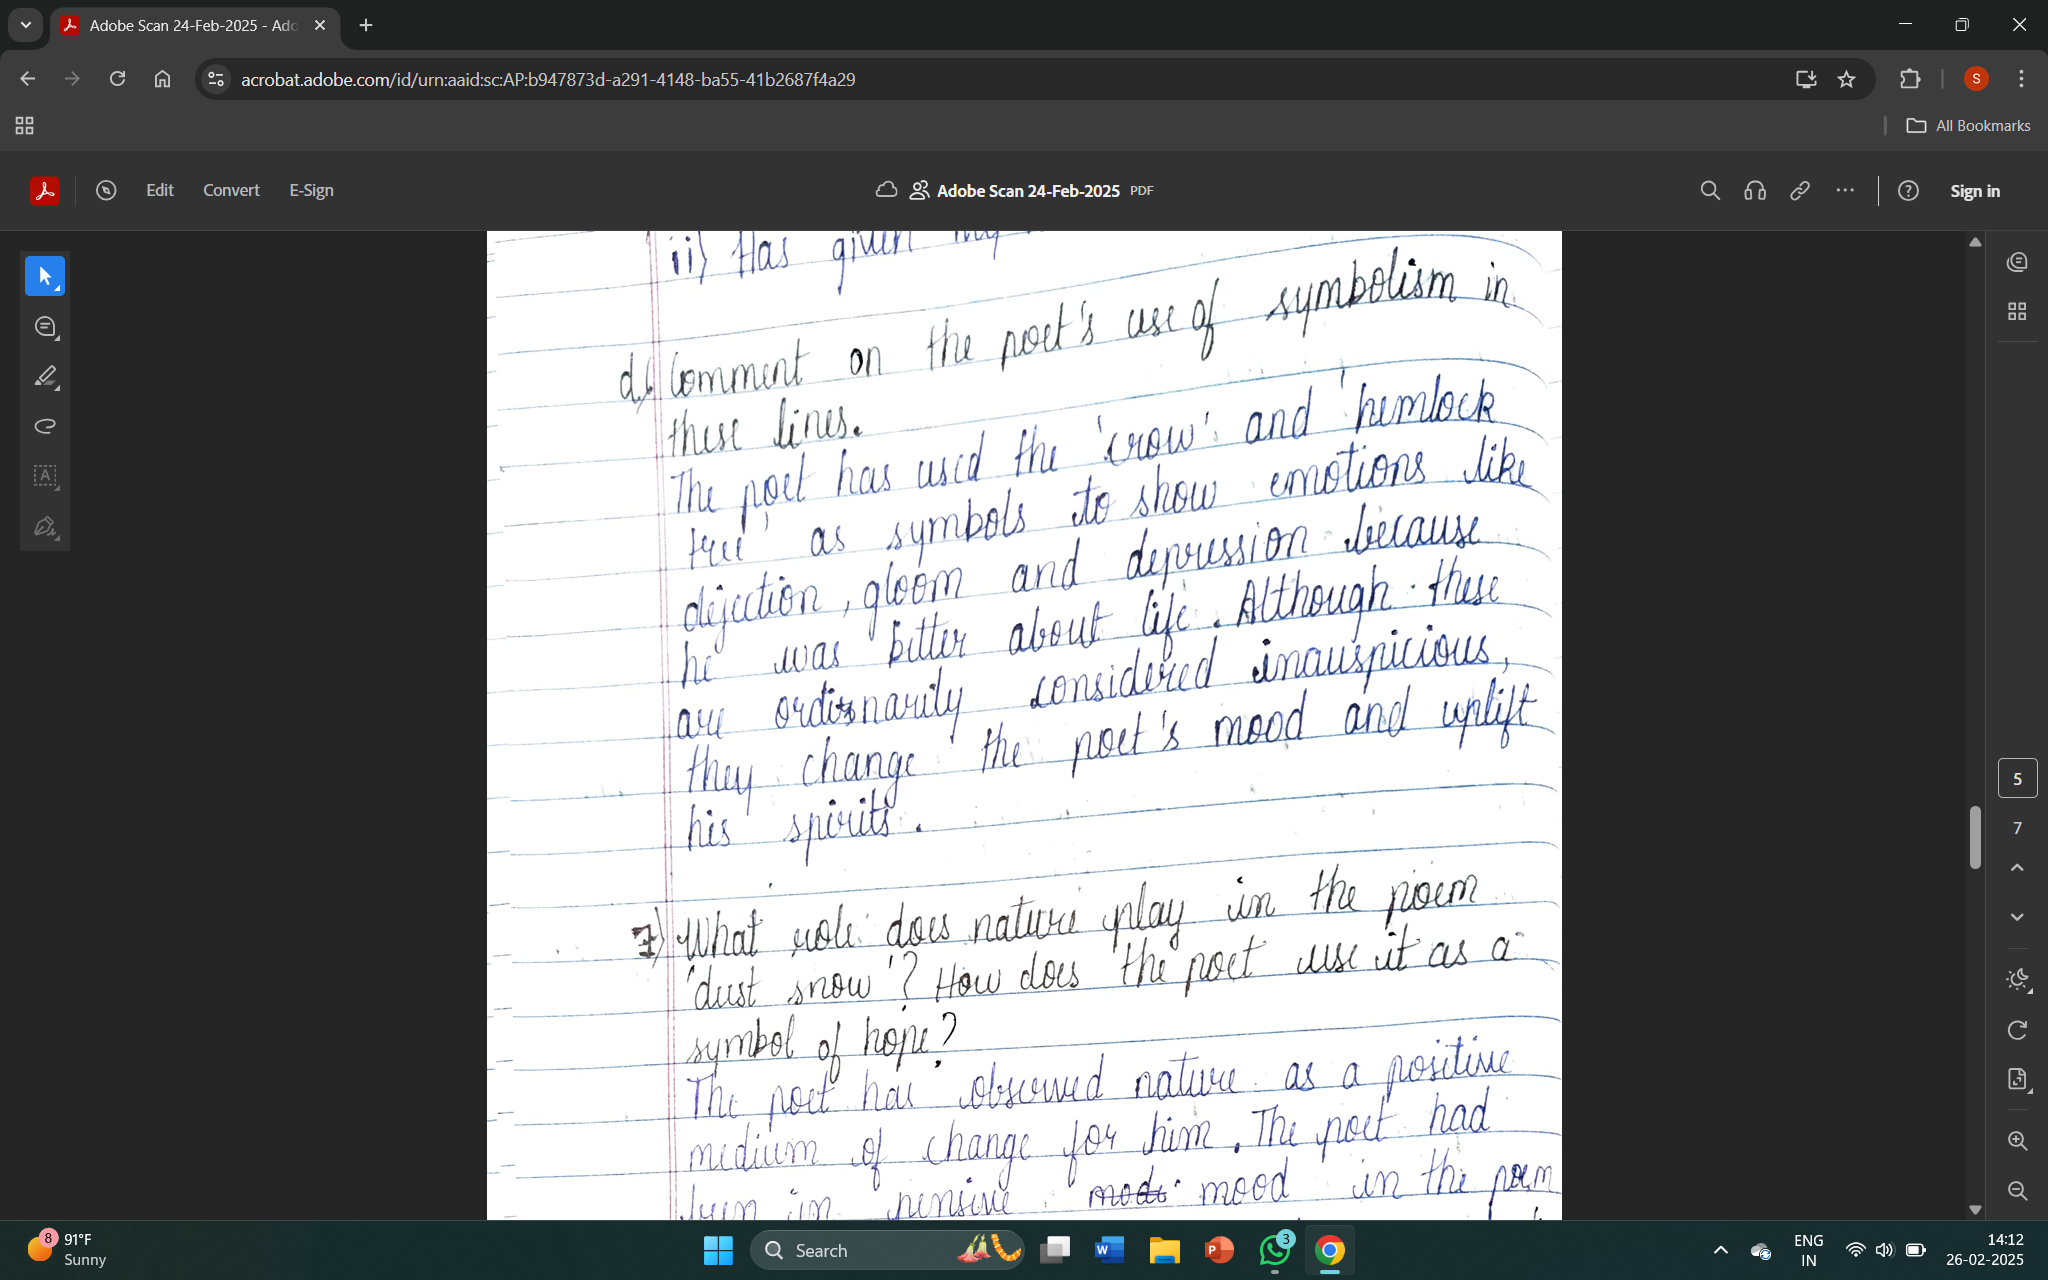 Adobe Scan 24-Feb-2025 - Ado
acrobat.adobe.com/id/urn:aaid:sc:AP:b947873d-a291-4148-ba55-41b2687f4a29
S
All Bookmarks
Edit Convert E-Sign
Adobe Scan 24-Feb-2025 PDF
Sign in
ii) Has given my
d) Comment on the poet's use of symbolism in
these lines.
The poet has used the 'crow' and 'hemlock
tree' as symbols to show emotions like
dejection, gloom and depression because
he was bitter about life. Although these
are ordinarily considered inauspicious,
they change the poet's mood and uplift
his spirits.
7) What role does nature play in the poem
'dust snow'? How does the poet use it as a
symbol of hope?
The poet has observed nature as a positive
medium of change for him. The poet had
been in pensive mood in the poem
5
7
8
91°F
Sunny
Search
3
ENG
IN
14:12
26-02-2025